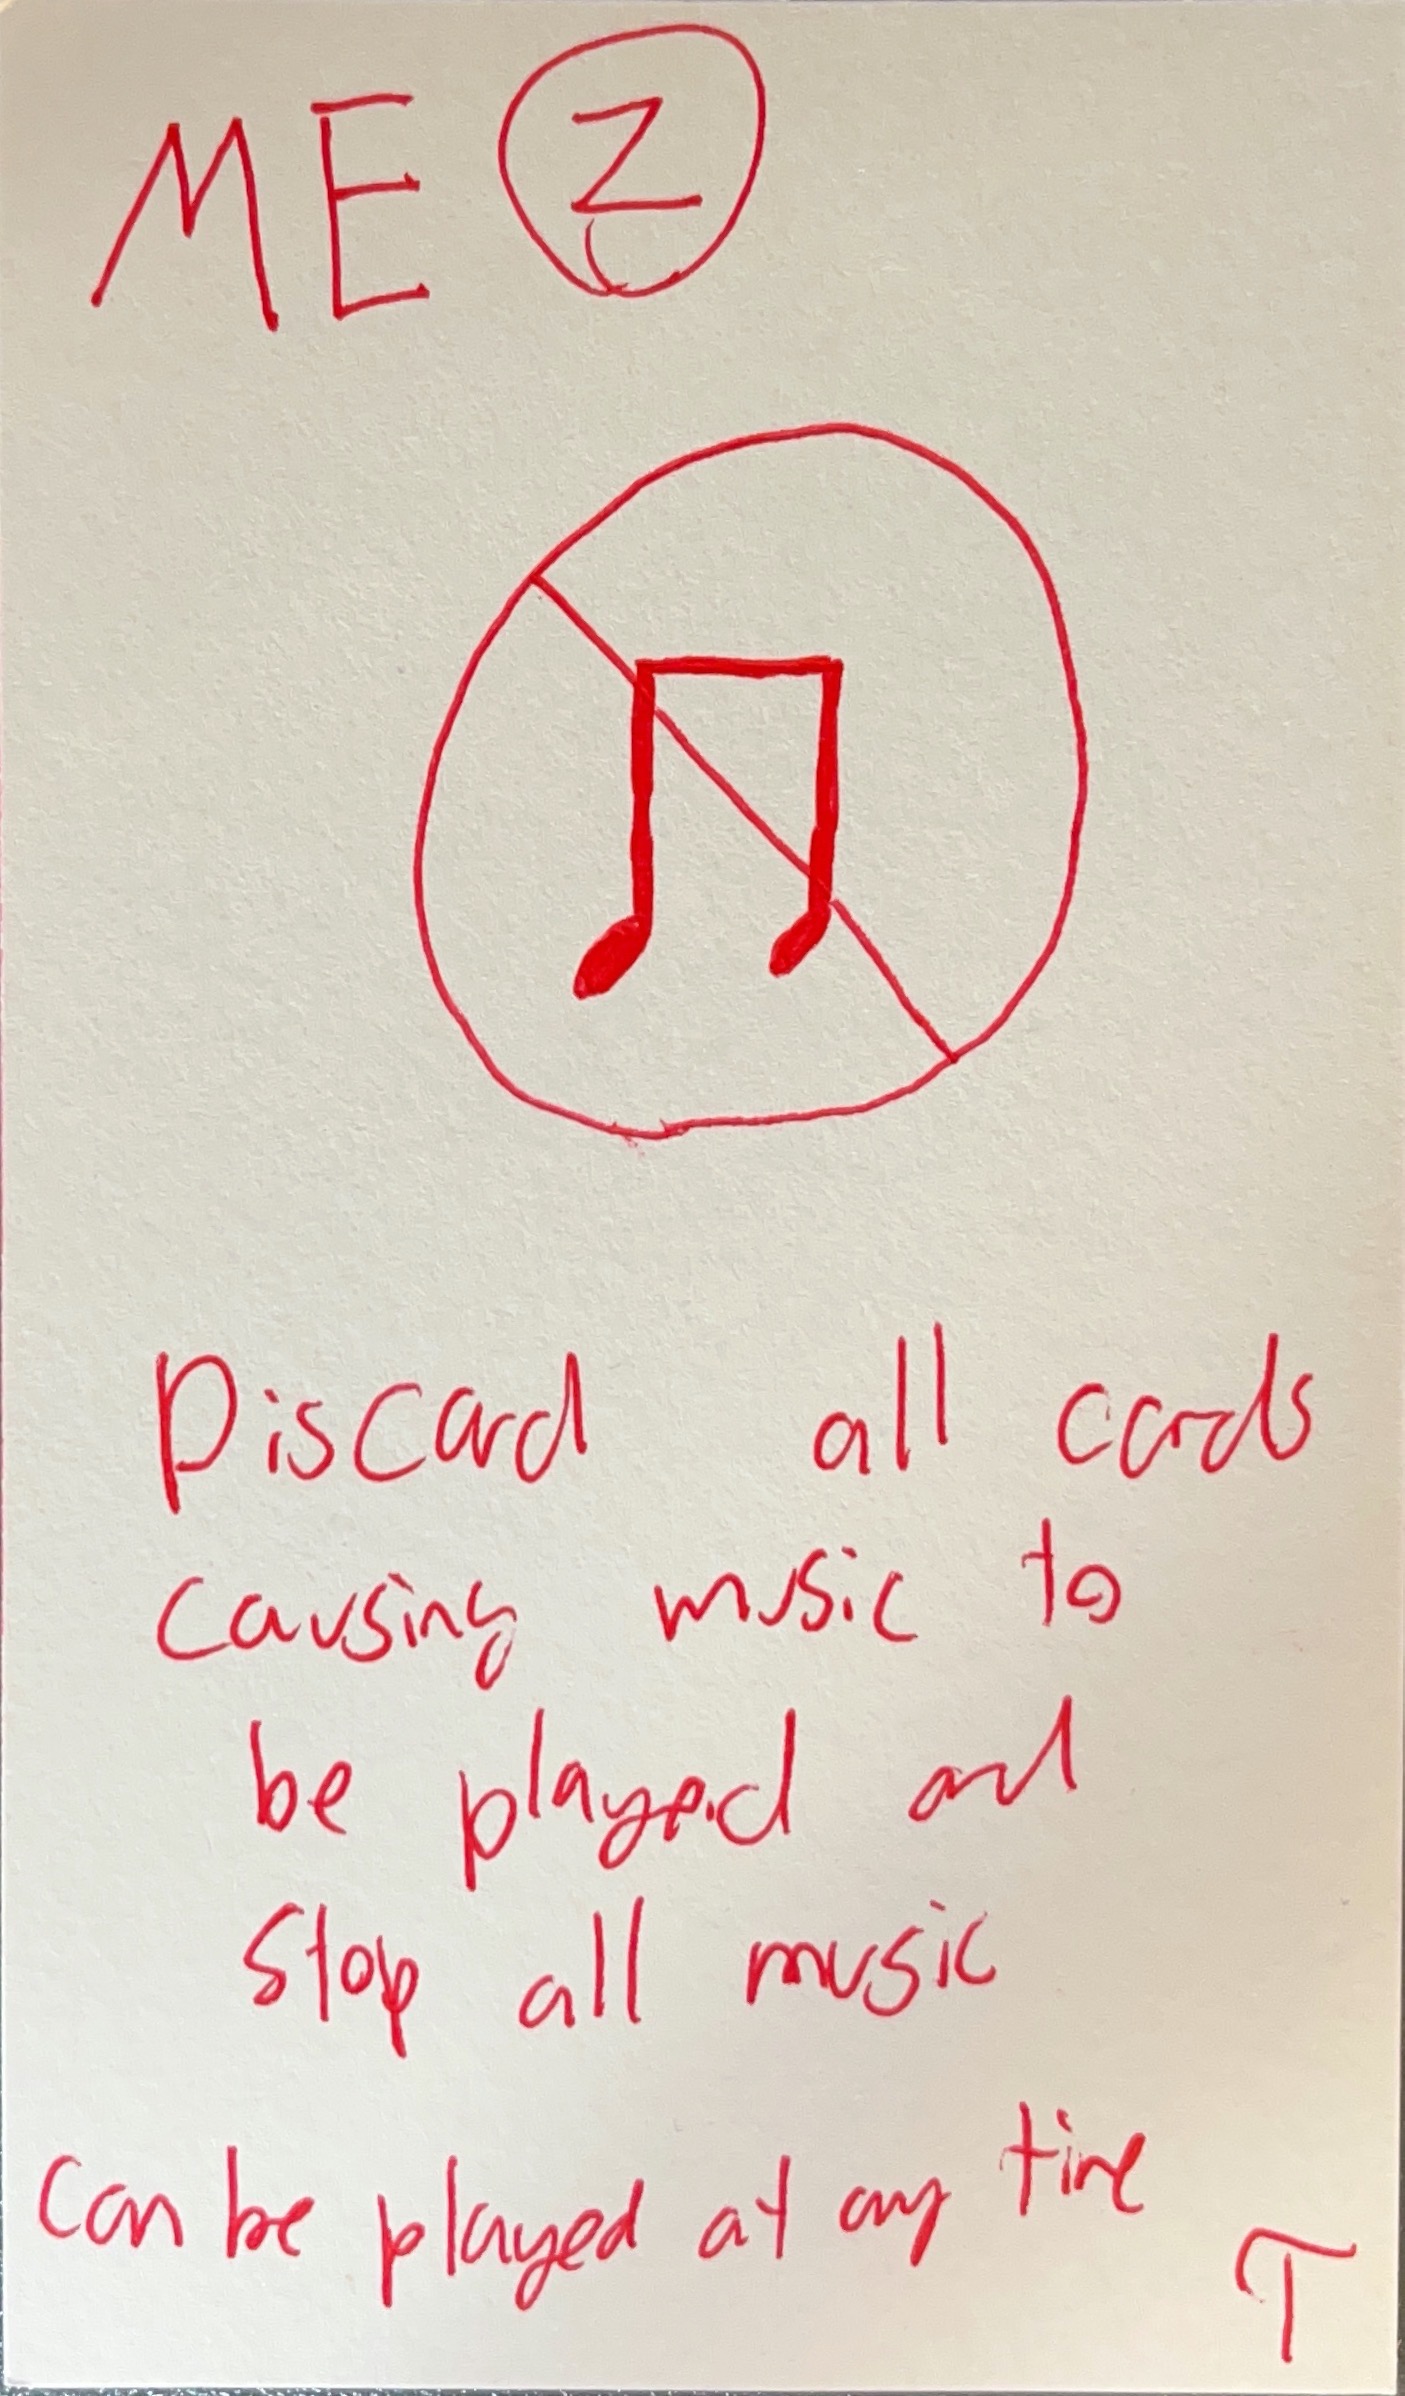 ME Z
Discard all cards
causing music to
be played and
stop all music
can be played at any time
T